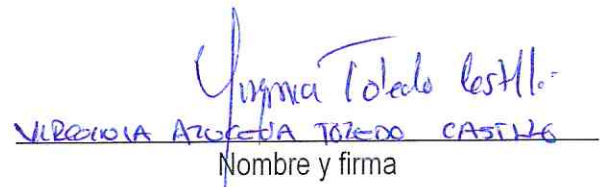 Virginia Toledo Castillo
VIRGINIA AZUCENA TOLEDO CASTILLO
Nombre y firma